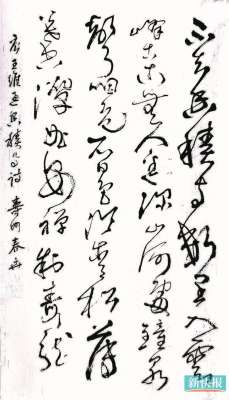 不知香積寺數里入雲
峰古木無人徑深山何處鐘泉
聲咽危石日色冷青松薄
暮空潭曲安禪制毒龍
王維過香積寺詩
新快报